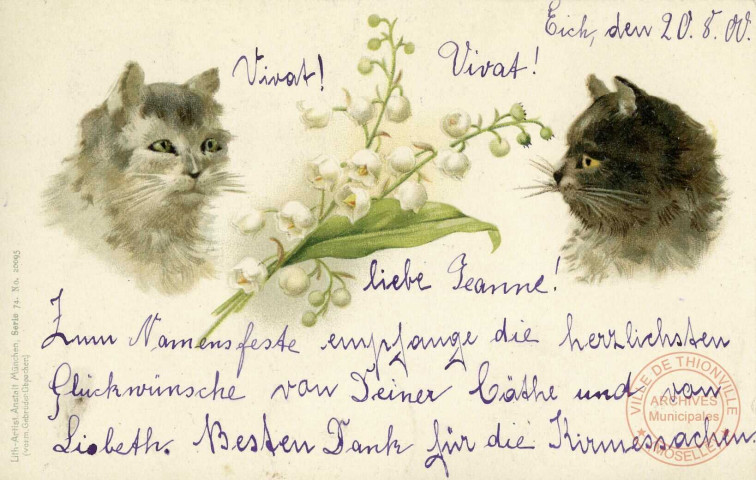 Eich, den 20. 8. 00.
Vivat! Vivat!
liebe Jeanne!
Zum Namensfeste empfange die herzlichsten
Glückwünsche von Deiner Cäthe und von
Lisbeth. Besten Dank für die Kirmessachen.
Lith.-Artist. Anstalt München, Serie 74. No. 20093
(vorm. Gebrüder Obpacher)
VILLE DE THIONVILLE
ARCHIVES
Municipales
MOSELLE